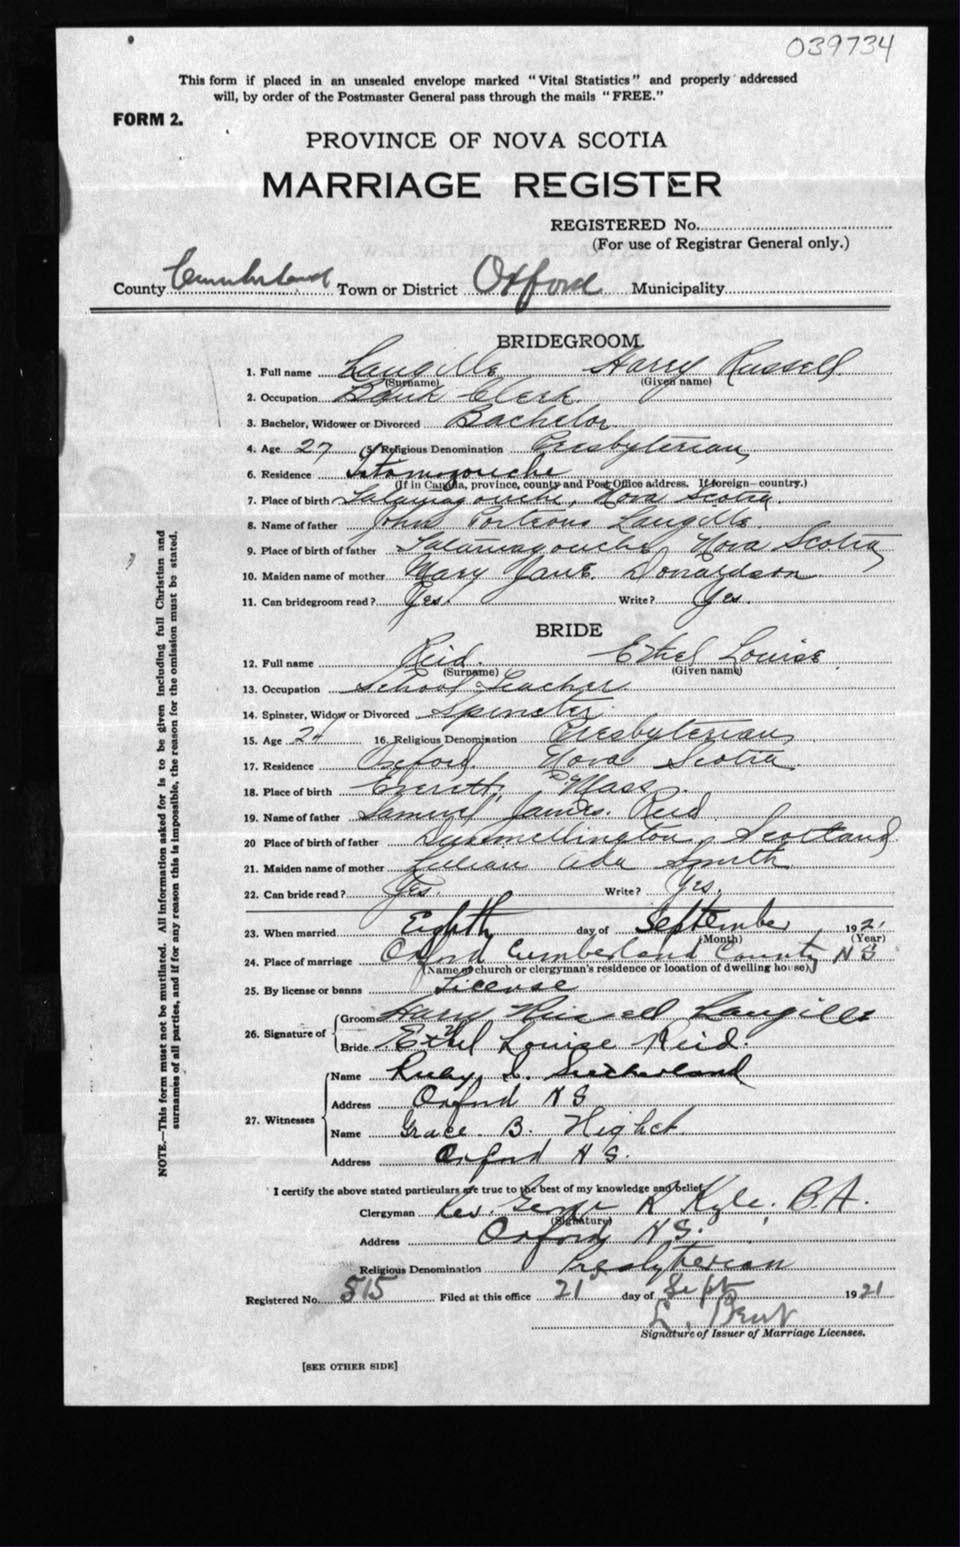 039734
This form if placed in an unsealed envelope marked "Vital Statistics" and properly addressed
will, by order of the Postmaster General pass through the mails "FREE."
FORM 2.
PROVINCE OF NOVA SCOTIA
MARRIAGE REGISTER
REGISTERED No.
(For use of Registrar General only.)
County Cumberland Town or District Oxford Municipality
BRIDEGROOM
1. Full name Langille Harry Russell
(Surname) (Given name)
2. Occupation Bank Clerk
3. Bachelor, Widower or Divorced Bachelor
4. Age 27 5. Religious Denomination Presbyterian
6. Residence Tatamagouche
(If in Canada, province, county and Post Office address. If foreign—country.)
7. Place of birth Tatamagouche, Nova Scotia
8. Name of father John Porteous Langille.
9. Place of birth of father Tatamagouche Nova Scotia
10. Maiden name of mother Mary Jane Donaldson
11. Can bridegroom read? Yes. Write? Yes.
BRIDE
12. Full name Reid. Ethel Louise
(Surname) (Given name)
13. Occupation School Teacher
14. Spinster, Widow or Divorced Spinster
15. Age 24 16. Religious Denomination Presbyterian
17. Residence Oxford Nova Scotia
18. Place of birth Everett, Mass.
19. Name of father Samuel James Reid
20 Place of birth of father Scotland
21. Maiden name of mother Lillian Ada Smith
22. Can bride read? Yes. Write? Yes.
23. When married Eighth day of September 1921
(Month) (Year)
24. Place of marriage Oxford Cumberland County N S
(Name of church or clergyman's residence or location of dwelling house)
25. By license or banns License
26. Signature of Groom Harry Russell Langille
Bride Ethel Louise Reid.
27. Witnesses Name Ruby L. Sutherland
Address Oxford N S
Name Grace B. Hight
Address Oxford N S.
I certify the above stated particulars are true to the best of my knowledge and belief.
Clergyman Rev. George R Kyle, B.A.
(Signature)
Address Oxford N.S.
Religious Denomination Presbyterian
Registered No. 515 Filed at this office 21 day of Sept 1921
L. Bent
Signature of Issuer of Marriage Licenses.
[SEE OTHER SIDE]
NOTE.—This form must not be mutilated. All information asked for is to be given including full Christian and
surnames of all parties, and if for any reason this is impossible, the reason for the omission must be stated.